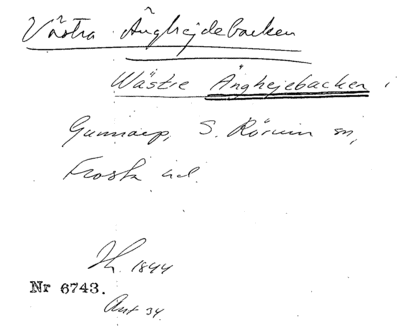 Västra Änghejdebacken
Wästre Änghejebacken,
Gunnarp, S. Rörum sn,
Frosta hd.
1844
Nr 6743.
Akt 34.